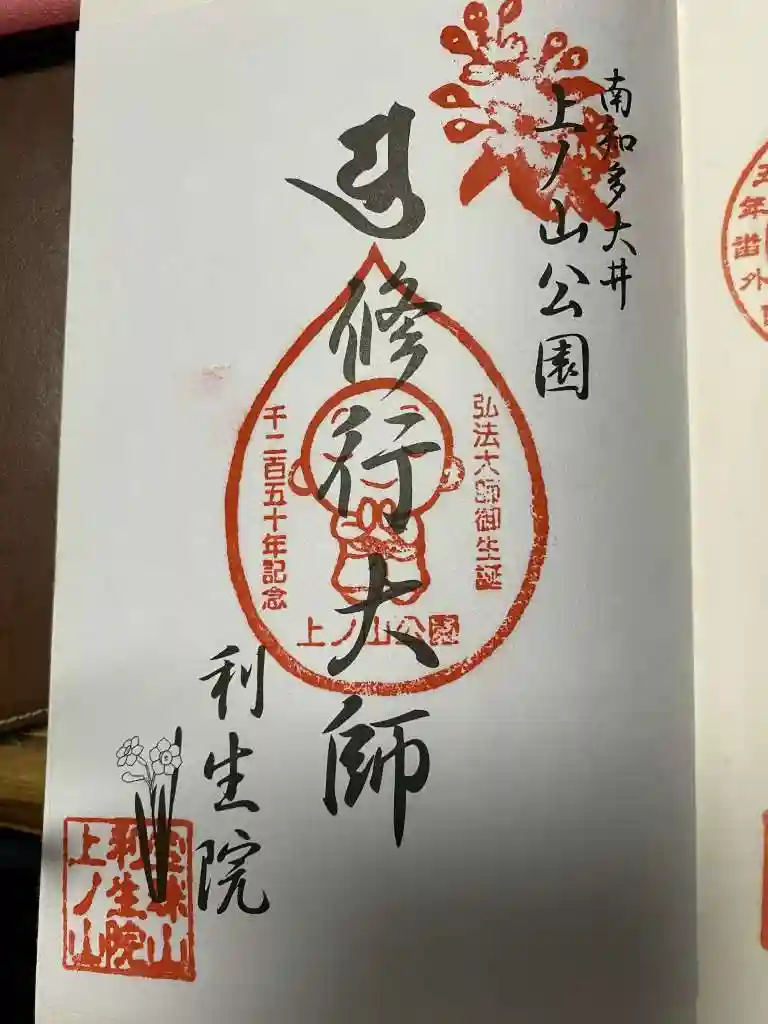 南知多大井
上ノ山公園
修行大師
弘法大師御生誕
千二百五十年記念
上ノ山公園
利生院
山
利生院
上ノ山
五年